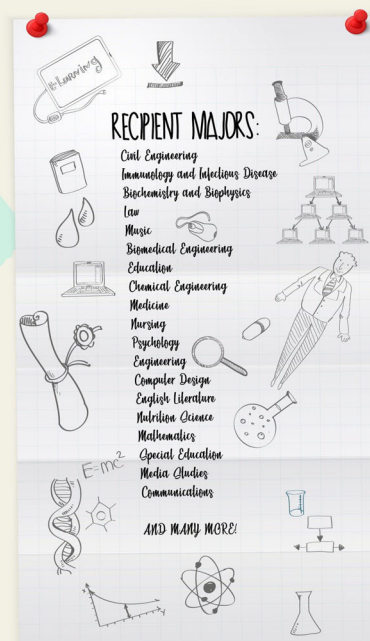 e-Learning
RECIPIENT MAJORS:
Civil Engineering
Immunology and Infectious Disease
Biochemistry and Biophysics
Law
Music
Biomedical Engineering
Education
Chemical Engineering
Medicine
Nursing
Psychology
Engineering
Computer Design
English Literature
Nutrition Science
Mathematics
Special Education
E=mc²
Media Studies
Communications
AND MANY MORE!
x
y